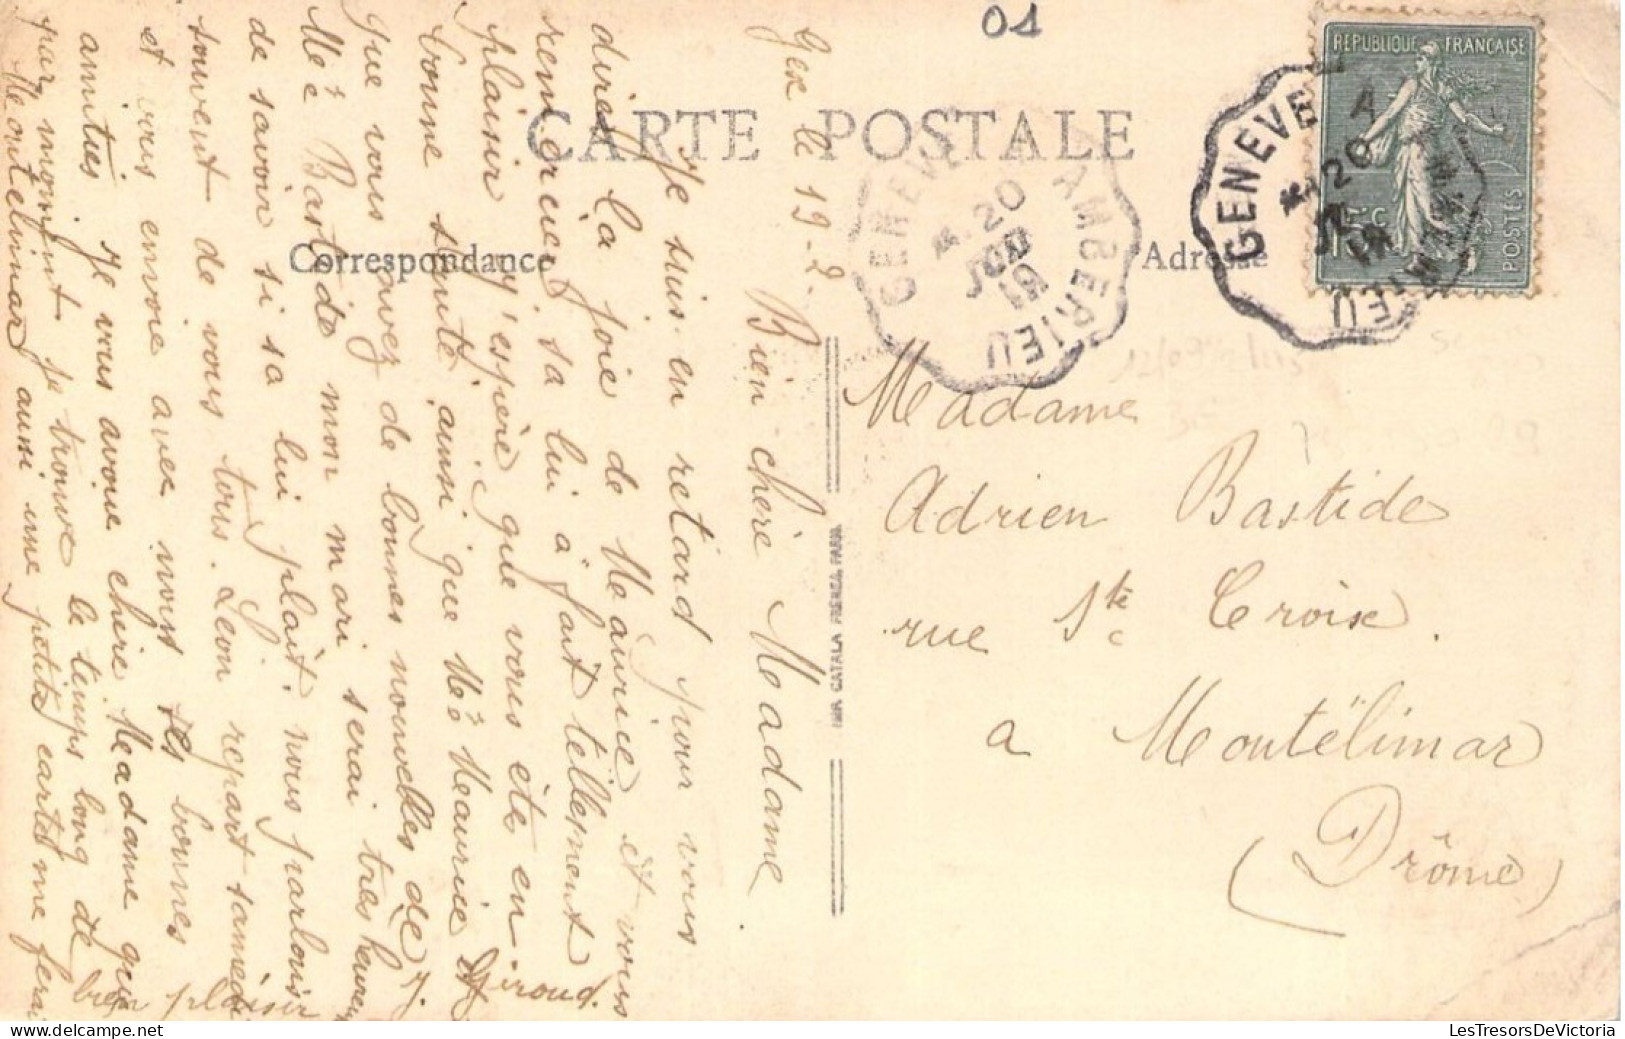 01
CARTE POSTALE
Correspondance
Adresse
REPUBLIQUE FRANÇAISE
15c
POSTES
GENEVE A AMBERIEU
20
JUN
19
GENEVE A
20
19
IMP. CATALA FRERES PARIS
Gex le 19-2.
Bien chère Madame
Je suis en retard pour vous
dires la joie de Maurice et vous
remercier sa lui à fait tellement
plaisir j'espère que vous ète en
bonne santé ainsi que Mr Maurice et
que vous avez de bonnes nouvelles de J.
Mr Bastide mon mari serai très heureux
de savoir si sa lui plaît. nous parlons
souvent de vous tous. Léon repart samedi
et vous envoie avec nous ses bonnes
amitiés Je vous avoue chère Madame que
par moment je trouve le temps long de
Montelimar aussi une petite carte me fera
bien plaisir
Giroud.
Madame
Adrien Bastide
rue Ste Croix.
a Montélimar
(Drôme)
LesTresorsDeVictoria